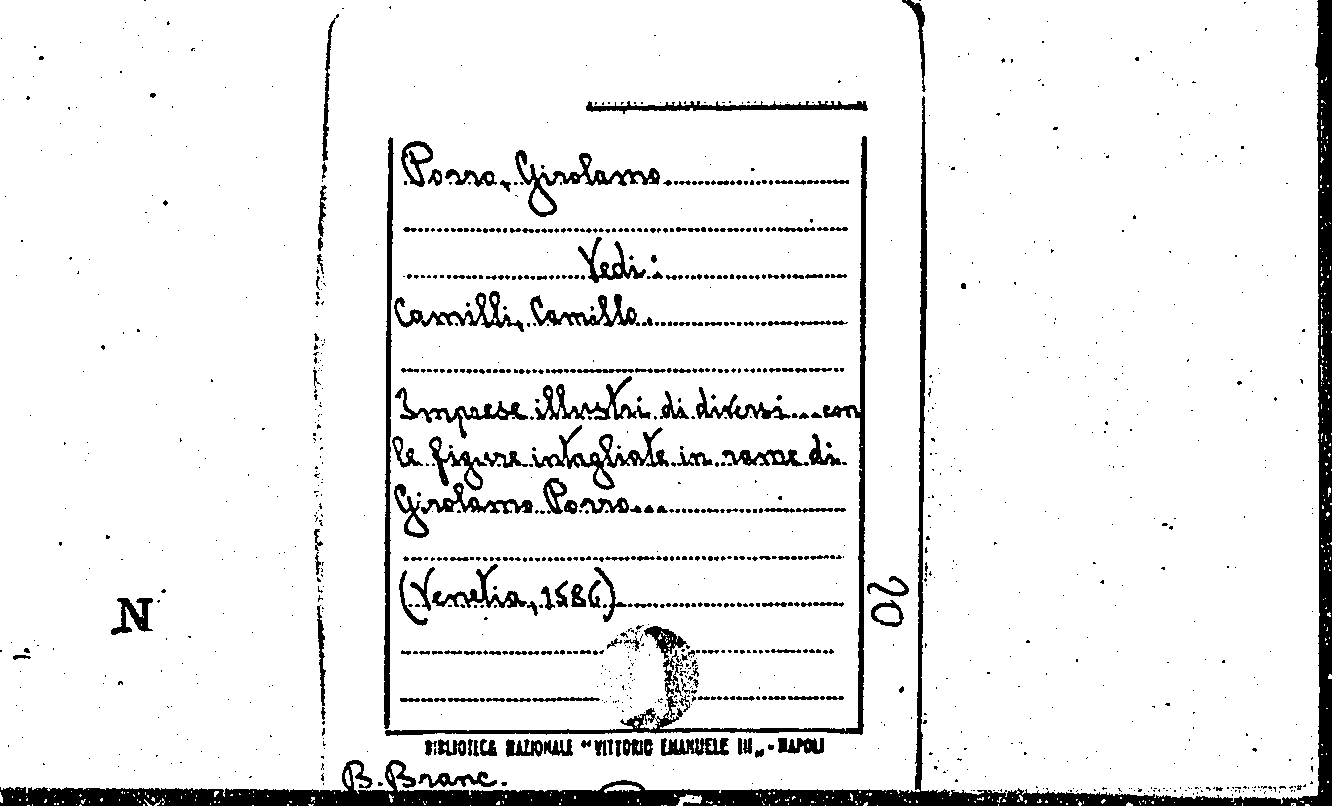 Porro, Girolamo
Vedi:
Camilli, Camillo.
Imprese illustri di diversi... con
le figure intagliate in rame di
Girolamo Porro...
(Venetia, 1586)
20
N
BIBLIOTECA NAZIONALE "VITTORIO EMANUELE III" - NAPOLI
B. Branc.